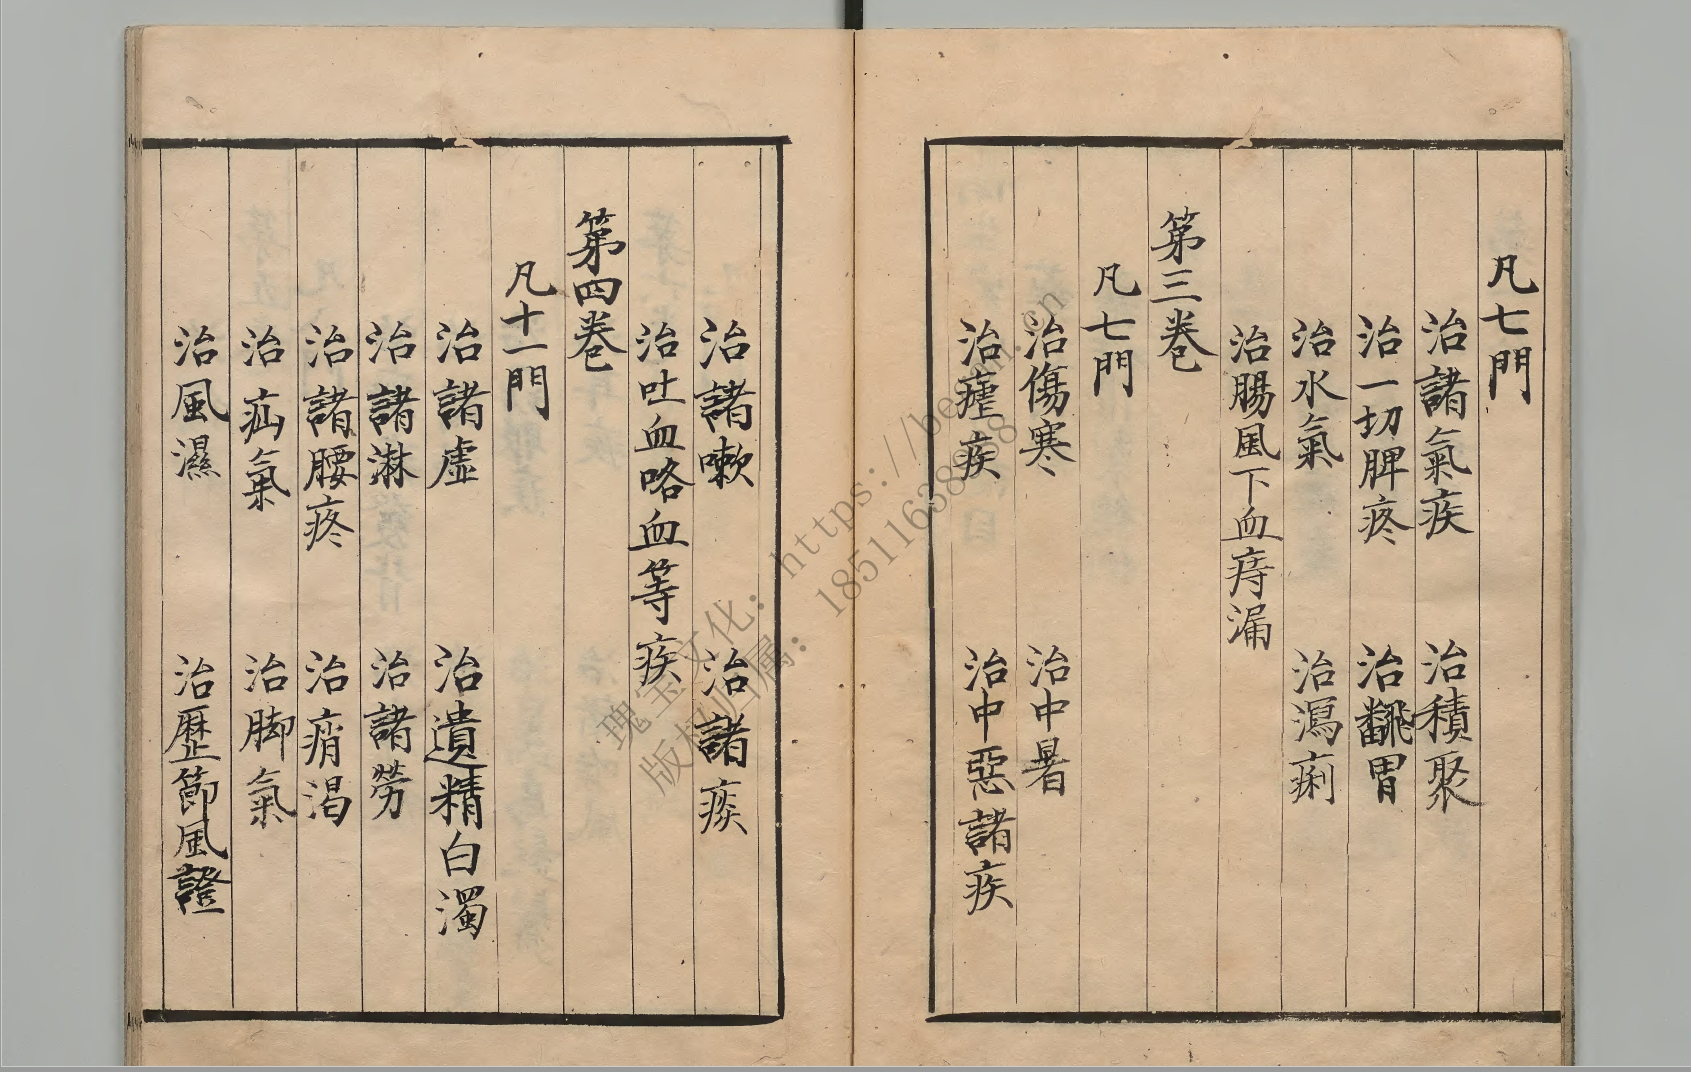 凡七門
治諸氣疾　治積聚
治一切脾疼　治翻胃
治水氣　治瀉痢
治腸風下血痔漏
第三卷
凡七門
治傷寒　治中暑
治瘧疾　治中惡諸疾
治諸嗽　治諸痰
治吐血咯血等疾
第四卷
凡十一門
治諸虛　治遺精白濁
治諸淋　治諸勞
治諸腰疼　治痟渴
治疝氣　治脚氣
治風濕　治歷節風證
瑰宝文化：https://
版权归属：18511638